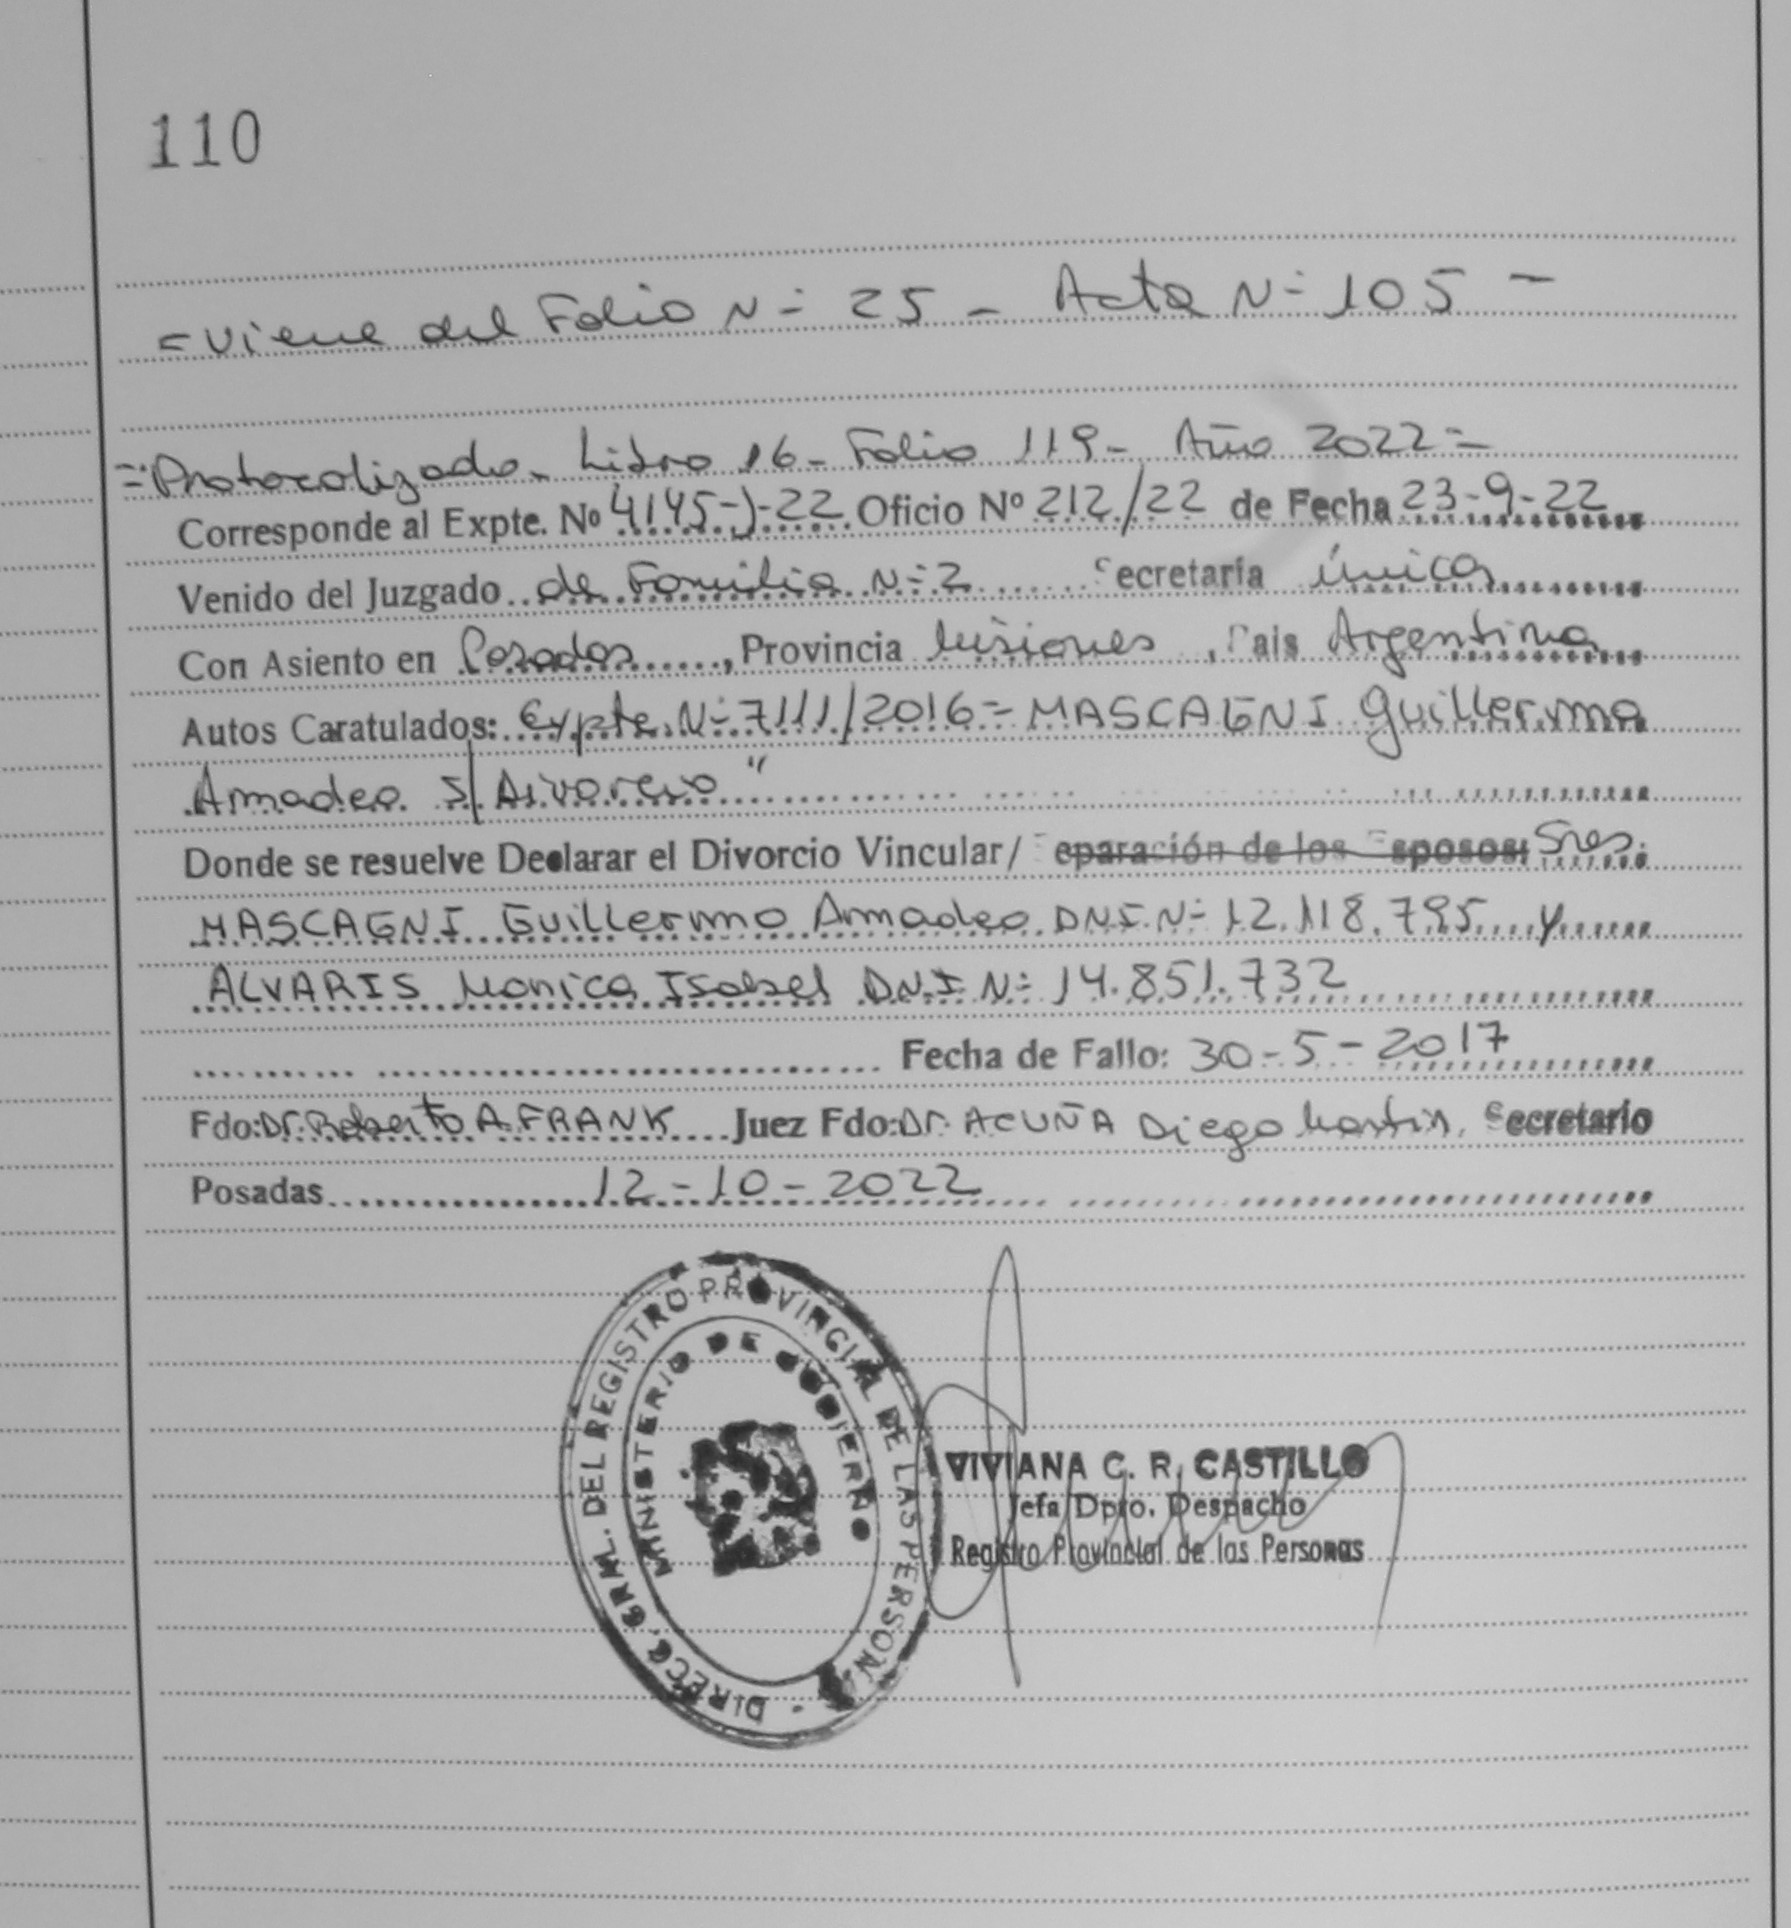 110
= Viene del Folio N= 25 - Acta N= 105 -
=: Protocolizado - Libro 16 - Folio 119 - Año 2022 =
Corresponde al Expte. Nº 4145-J-22 Oficio Nº 212/22 de Fecha 23-9-22
Venido del Juzgado de Familia N= 2 Secretaría Única
Con Asiento en Posadas, Provincia Misiones, Pais Argentina
Autos Caratulados: Expte. N= 7111/2016 = MASCAGNI Guillermo
Amadeo s/ Divorcio"
Donde se resuelve Declarar el Divorcio Vincular/ Separación de los Esposos: Sres.
MASCAGNI Guillermo Amadeo D.N.I. N= 12.118.795 y
ALVARIS Monica Isabel D.N.I N= 14.851.732
Fecha de Fallo: 30-5-2017
Fdo: Dr. Roberto A. FRANK Juez Fdo: Dr. ACUÑA Diego Martin. Secretario
Posadas 12-10-2022
DIRECC. GRAL. DEL REGISTRO PROVINCIAL DE LAS PERSON.
MINISTERIO DE GOBIERNO
VIVIANA C. R. CASTILLO
Jefa Dpto. Despacho
Registro Provincial de las Personas